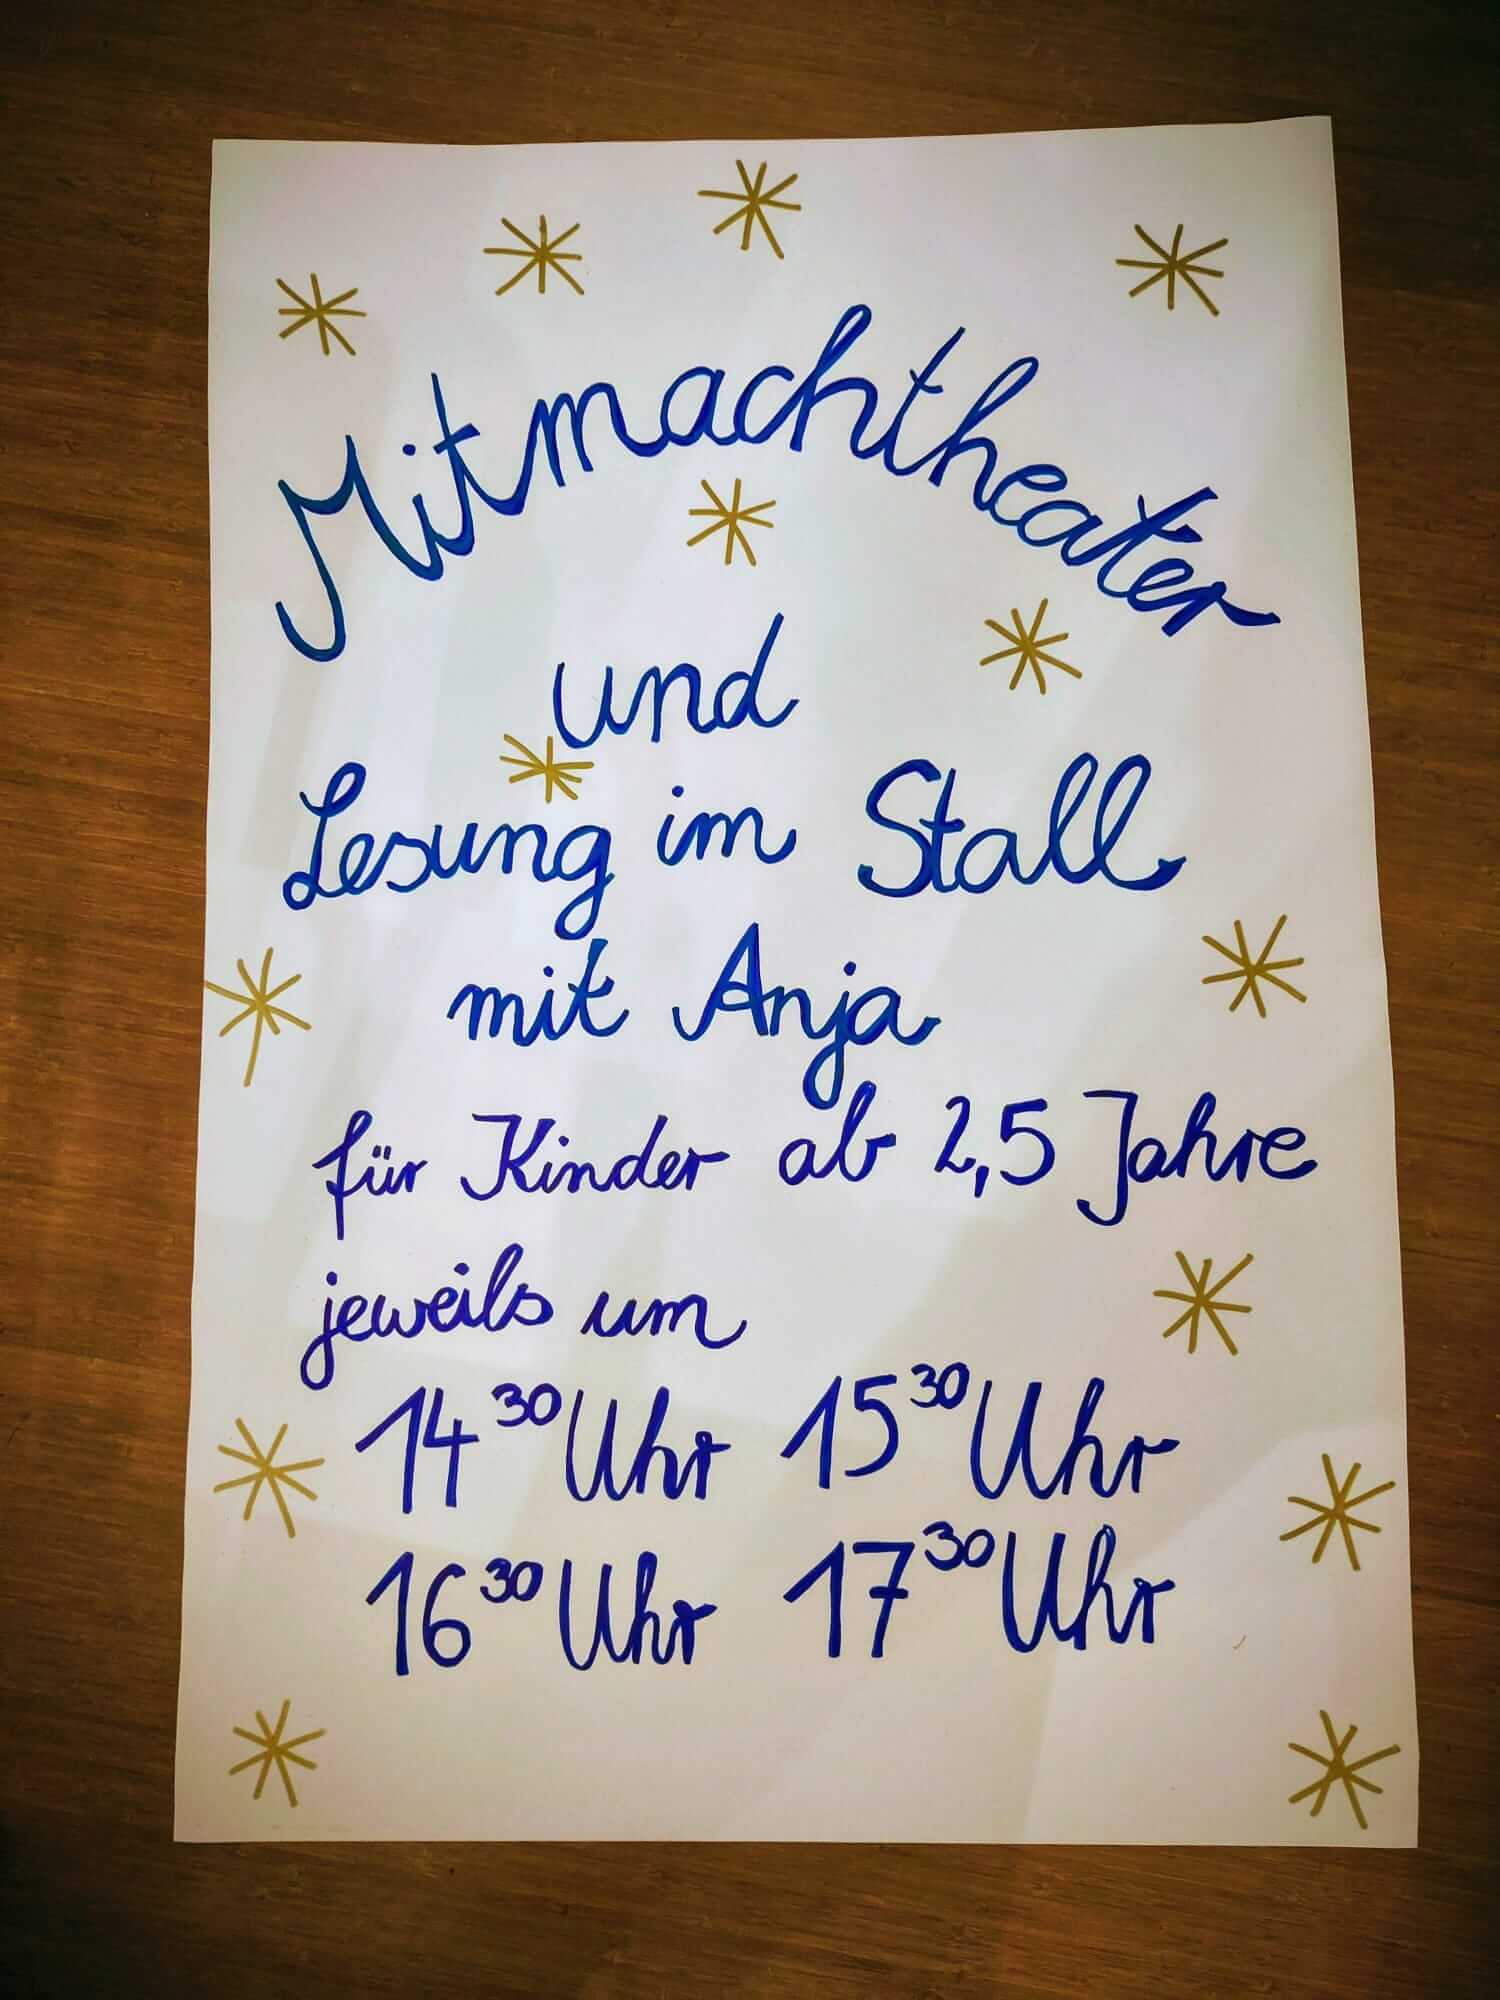 Mitmachtheater
und
Lesung im Stall
mit Anja
für Kinder ab 2,5 Jahre
jeweils um
14³⁰ Uhr 15³⁰ Uhr
16³⁰ Uhr 17³⁰ Uhr